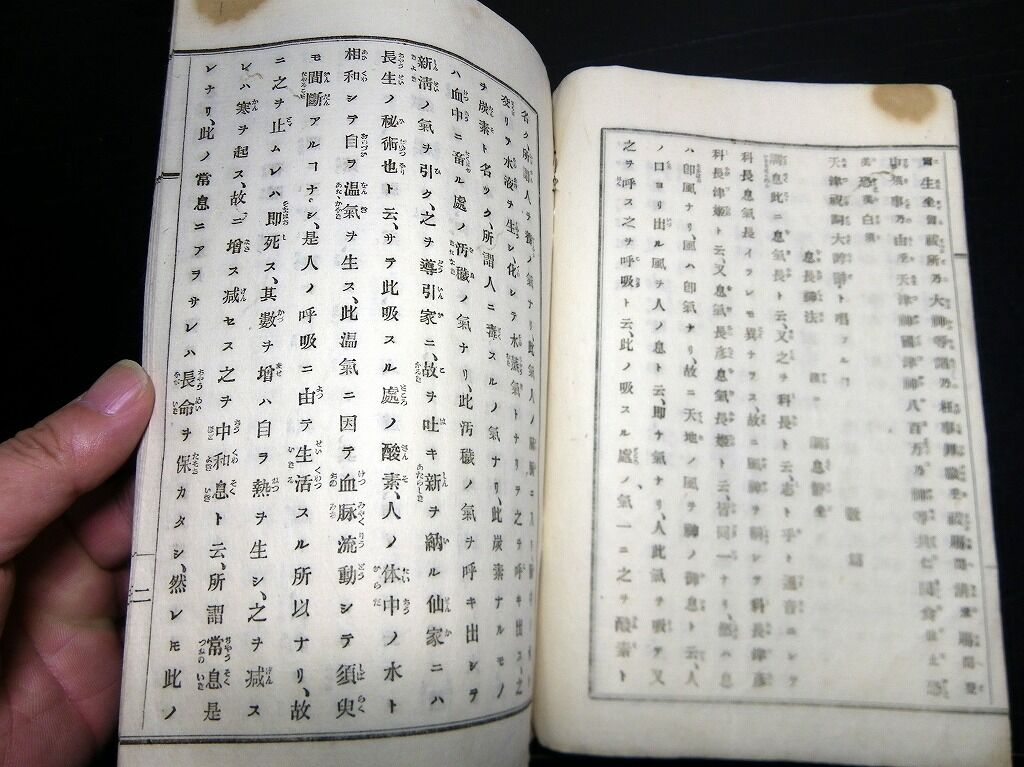 申須事乃由乎天津神國津神八百万乃
恐美恐美白須
天津祝詞大諄辞ト唱フル
息長
調息此ニ息氣長ト云、又之ヲ科長ト云、志ト乎ト通音ニシテ
科長息氣長イラレモ異ナラス、故ニ風神ヲ科長津彦
科長津姫ト云、又息氣長彦息氣長姫ト云、皆同一ナリ、然ハ
ハ即風ナリ、風ハ即氣ナリ、故ニ天地ノ風ヲ神ノ御息ト云、人
ノ口ヨリ出ル風ヲ人ノ息ト云、即ナ氣ナリ、人此氣ヲ吸ヘ又
之ヲ呼ス之ヲ呼吸ト云、此ノ吸スル處ノ氣一ニ之ヲ酸素ト
名ク、所謂人ヲ養フノ氣ナリ、此氣人ノ
交リヲ水液ヲ生シ、化シテ水蒸氣トナリテ之ヲ呼キ出ス、之
ヲ炭素ト名ツク、所謂人ニ毒スルノ氣ナリ、此炭素ナルモノ
ハ血中ニ畜ル處ノ汚穢ノ氣ナリ、此汚穢ノ氣ヲ呼キ出シテ
新淸ノ氣ヲ引ク、之ヲ導引家ニ、故ヲ吐キ新ヲ納ル仙家ニハ
長生ノ秘術也ト云、サテ此吸スル處ノ酸素、人ノ体中ノ水ト
相和シテ自ラ温氣ヲ生ス、此温氣ニ因テ血脉流動シテ須臾
モ間斷アルコナシ、是人ノ呼吸ニ由テ生活スル所以ナリ、故
ニ之ヲ止ムレハ即死ス、其數ヲ增ハ自ラ熱ヲ生シ、之ヲ减ス
レハ寒ヲ起ス、故ニ增ス减セス之ヲ中和息ト云、所謂常息是
レナリ、此ノ常息ニアラサレハ長命ヲ保カタシ、然レモ此ノ
二